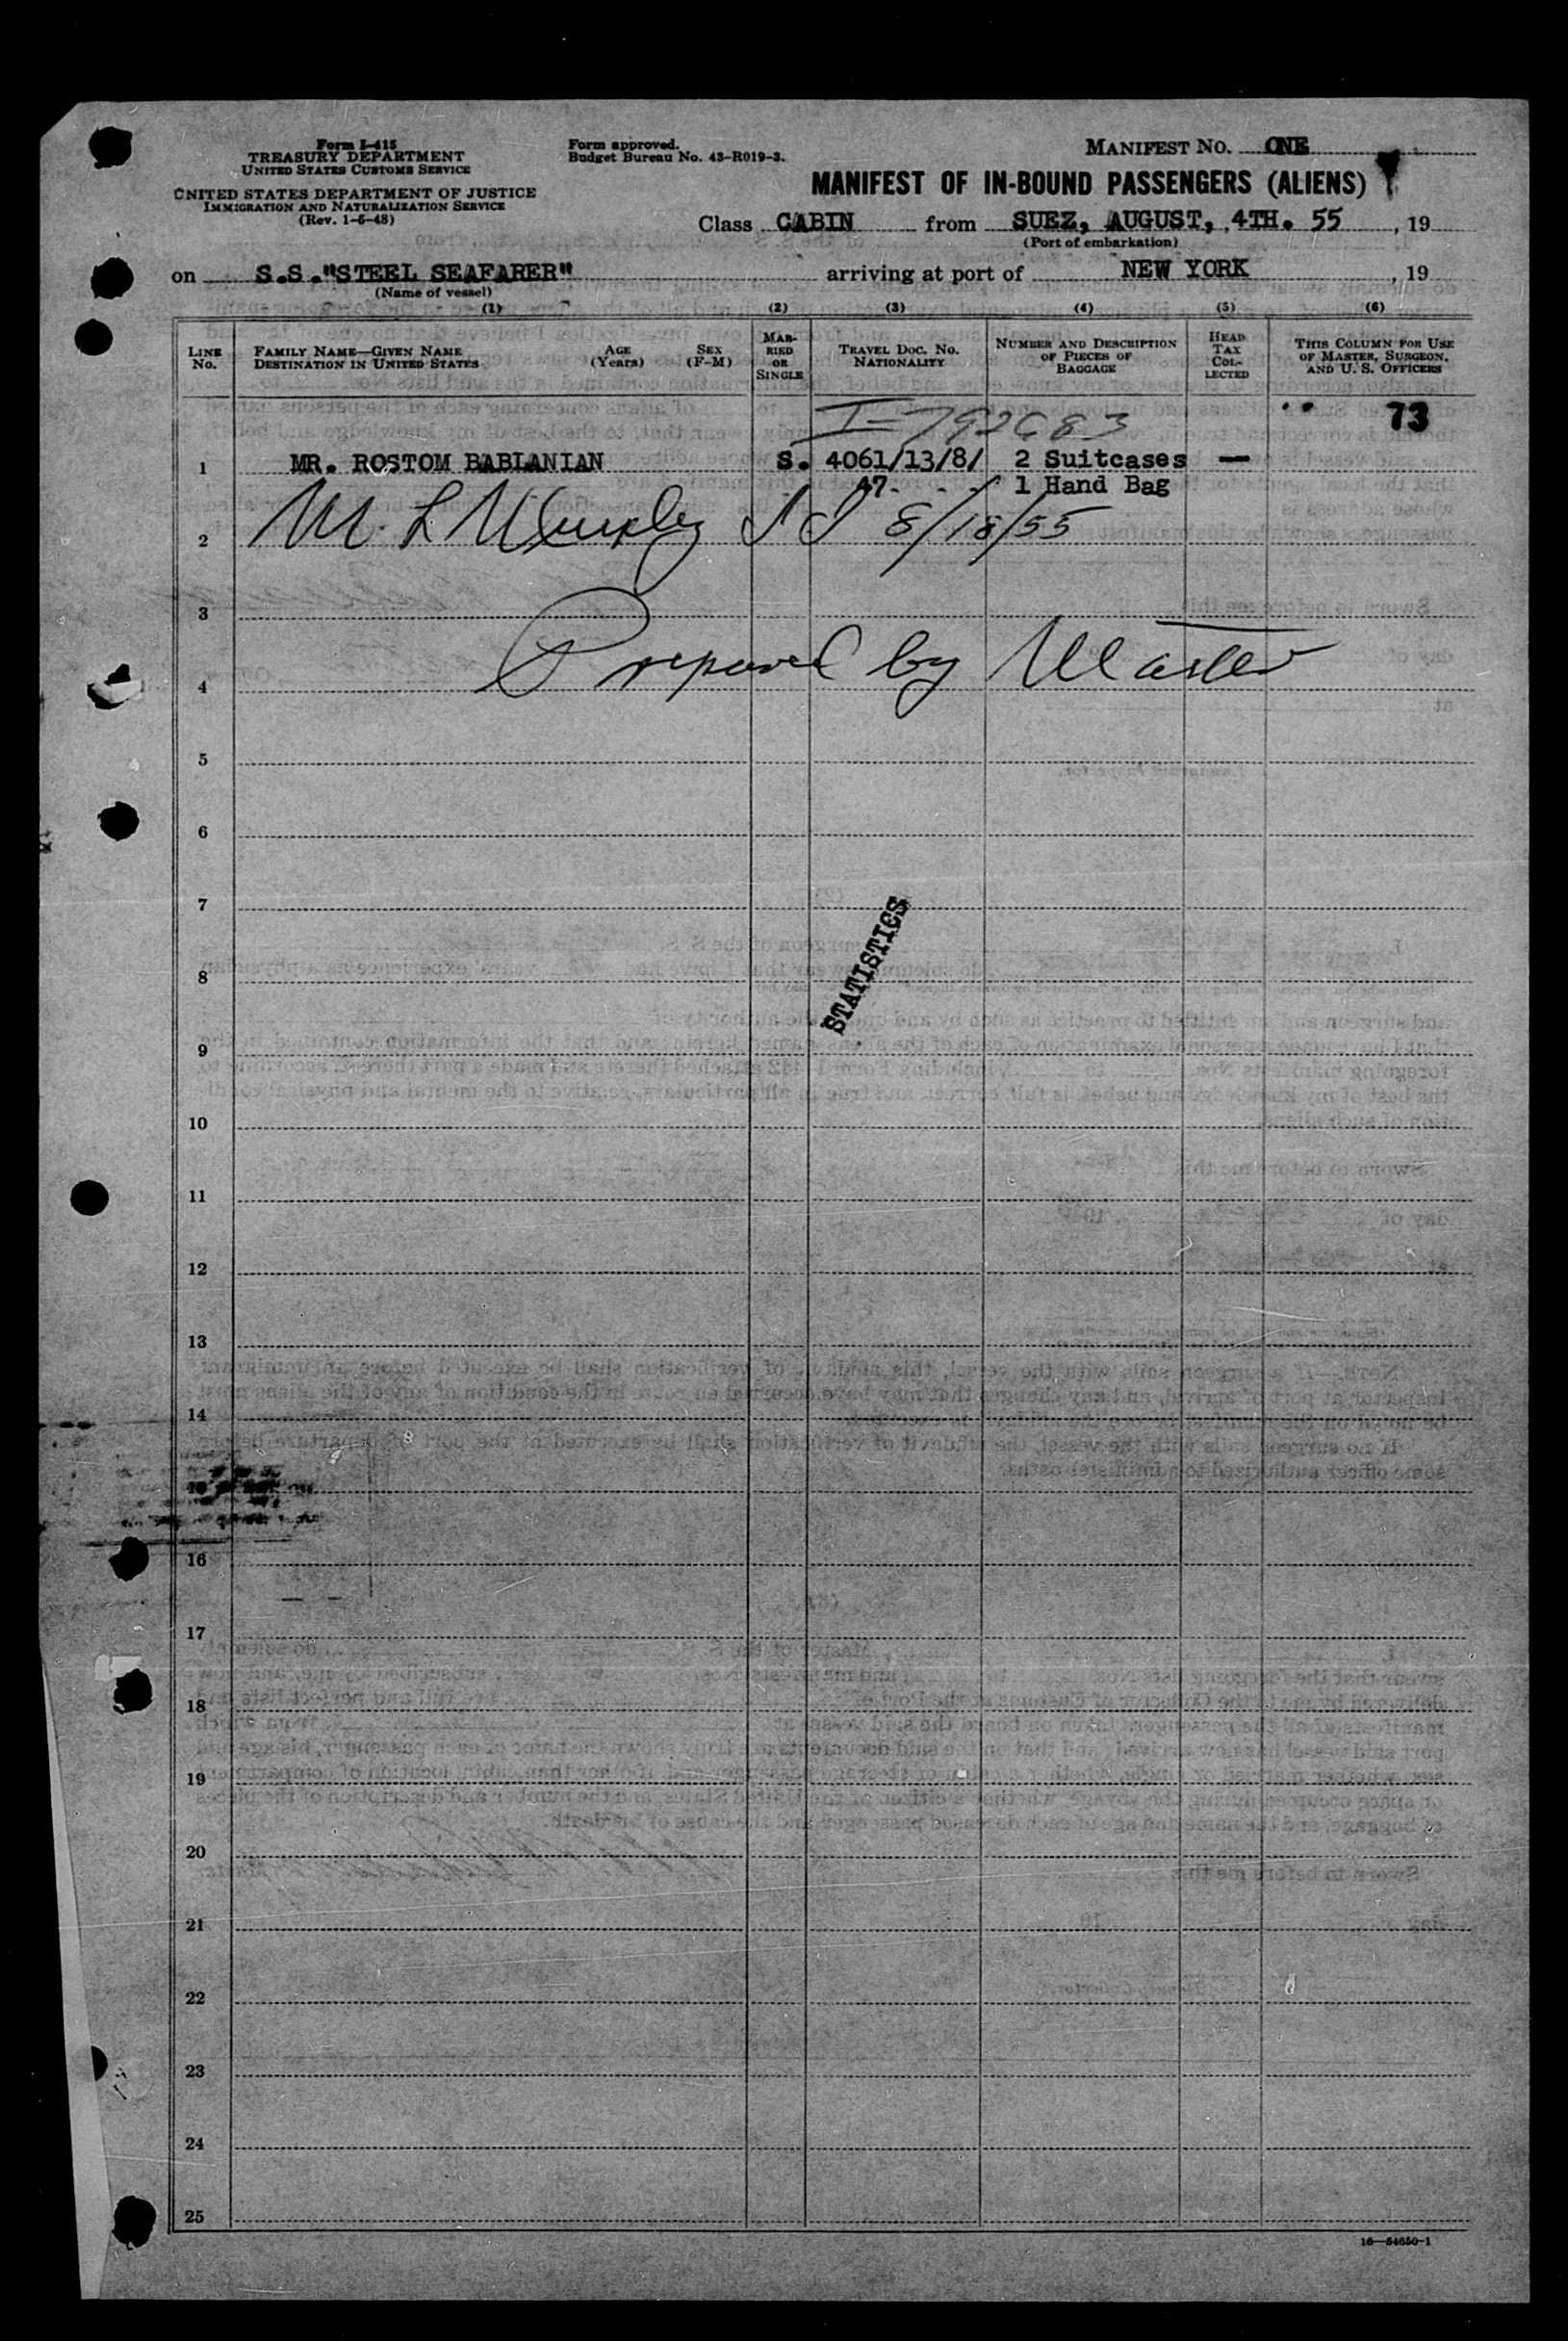 Form I-415
TREASURY DEPARTMENT
UNITED STATES CUSTOMS SERVICE
UNITED STATES DEPARTMENT OF JUSTICE
IMMIGRATION AND NATURALIZATION SERVICE
(Rev. 1-6-48)
Form approved.
Budget Bureau No. 43-R019-3.
MANIFEST NO. ONE
MANIFEST OF IN-BOUND PASSENGERS (ALIENS)
Class CABIN from SUEZ, AUGUST, 4TH. 55, 19
(Port of embarkation)
on S.S."STEEL SEAFARER" arriving at port of NEW YORK, 19
(Name of vessel)
(1) (2) (3) (4) (5) (6)
LINE No.
FAMILY NAME—GIVEN NAME
DESTINATION IN UNITED STATES
AGE (Years)
SEX (F-M)
MARRIED OR SINGLE
TRAVEL DOC. NO.
NATIONALITY
NUMBER AND DESCRIPTION OF PIECES OF BAGGAGE
HEAD TAX COLLECTED
THIS COLUMN FOR USE OF MASTER, SURGEON, AND U. S. OFFICERS
I-792683 73
1 MR. ROSTOM BABIANIAN S. 4061/13/8/ 2 Suitcases —
47. 1 Hand Bag
2 M. L. Murphy 8/18/55
3
4 Prepared by Master
5
6
7
STATISTICS
8
9
10
11
12
13
14
16
17
18
19
20
21
22
23
24
25
16—54650-1